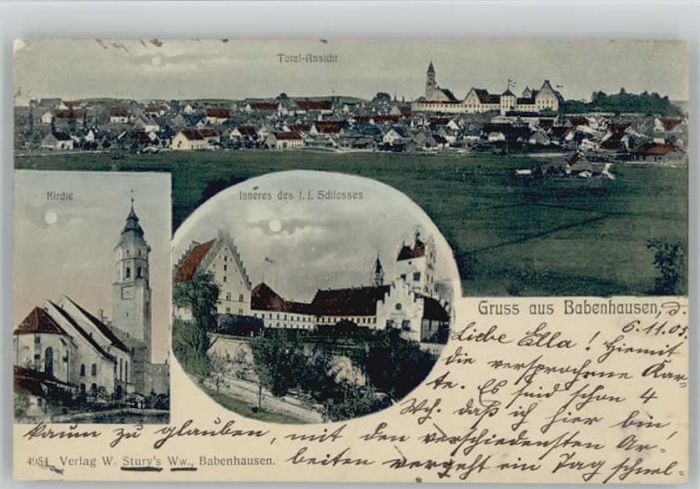 Total-Ansicht
Kirche
Inneres des f. f. Schlosses
Gruss aus Babenhausen, d.
6.11.05.
Liebe Ella! Hiermit
die versprochene Kar-
te. Es sind schon 4
Wch. daß ich hier bin,
kaum zu glauben, mit den verschiedensten Ar-
beiten vergeht ein Tag schnel-
4954 Verlag W. Stury's Ww., Babenhausen.